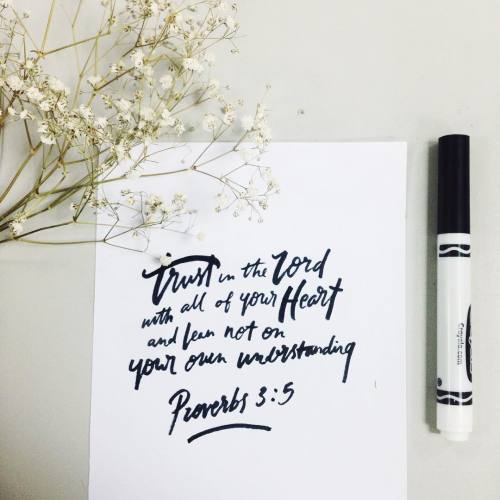 Trust in the Lord
with all of your Heart
and lean not on
your own understanding
Proverbs 3:5
Crayola.com